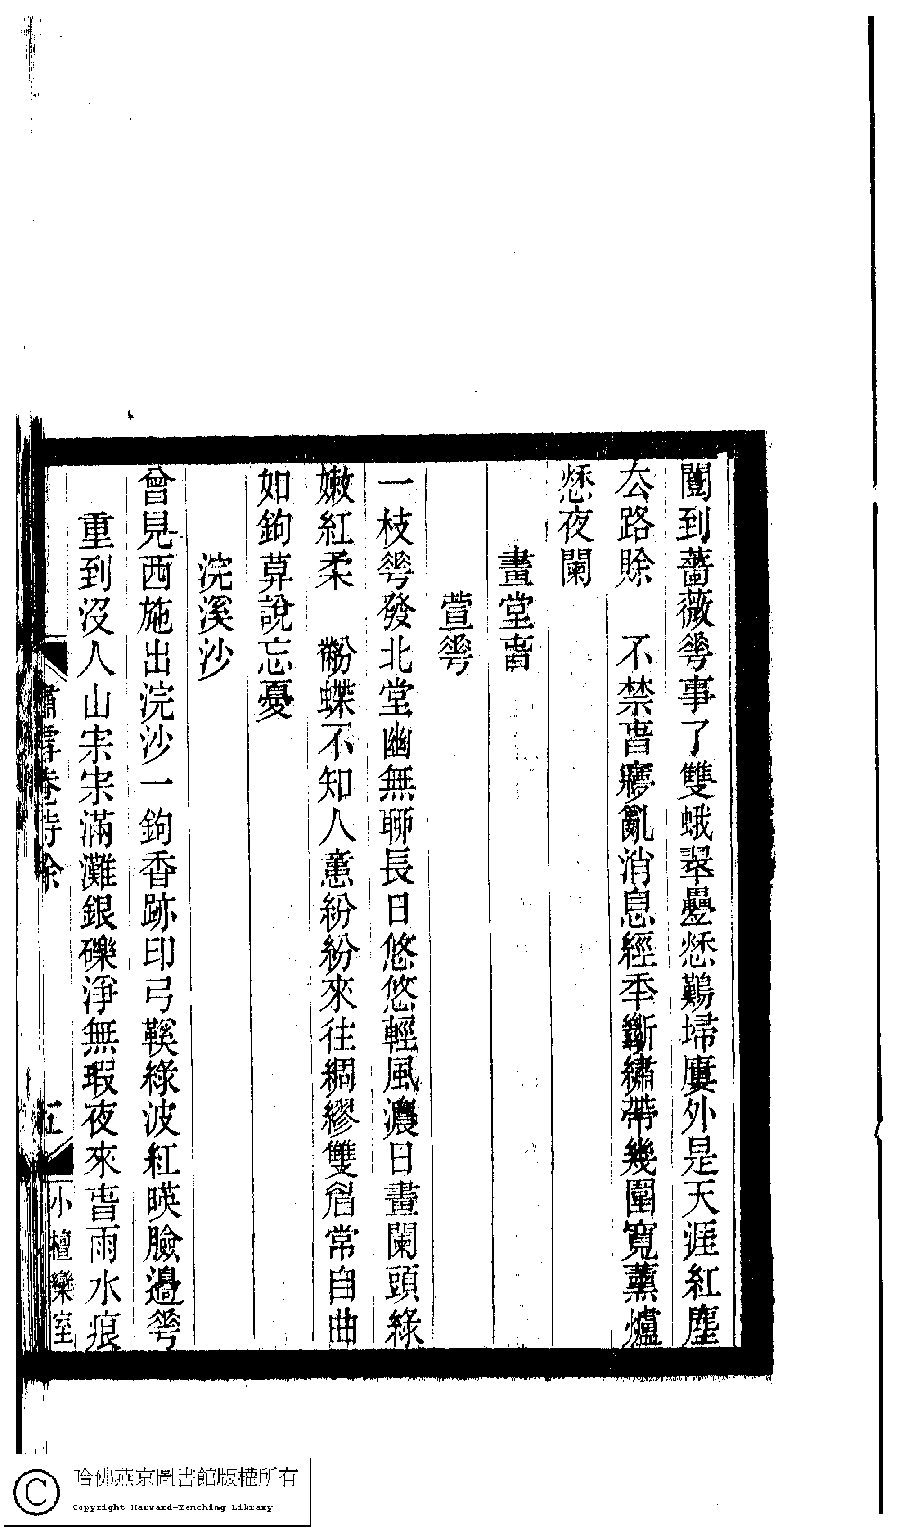 闌到薔薇䓸事了雙蛾翠疊愁鷬埽廔外是天涯紅塵
厺路賒　不禁旾㝱亂消息經秊斷繡帶幾圍寬薰爐
愁夜闌
畫堂旾
萱䓸
一枝䓸發北堂幽無聊長日悠悠輕風濃日畫闌頭綠
嫩紅柔　粉蝶不知人意紛紛來往綢繆雙眉常自曲
如鉤算說忘憂
浣溪沙
曾見西施出浣沙一鉤香跡印弓鞵綠波紅暎臉邊䓸
重到沒人山宋宋滿灘銀礫淨無瑕夜來旾雨水痕
雪庵詩餘
五
小檀欒室
哈佛燕京圖書館版權所有
Copyright Harvard-Yenching Library